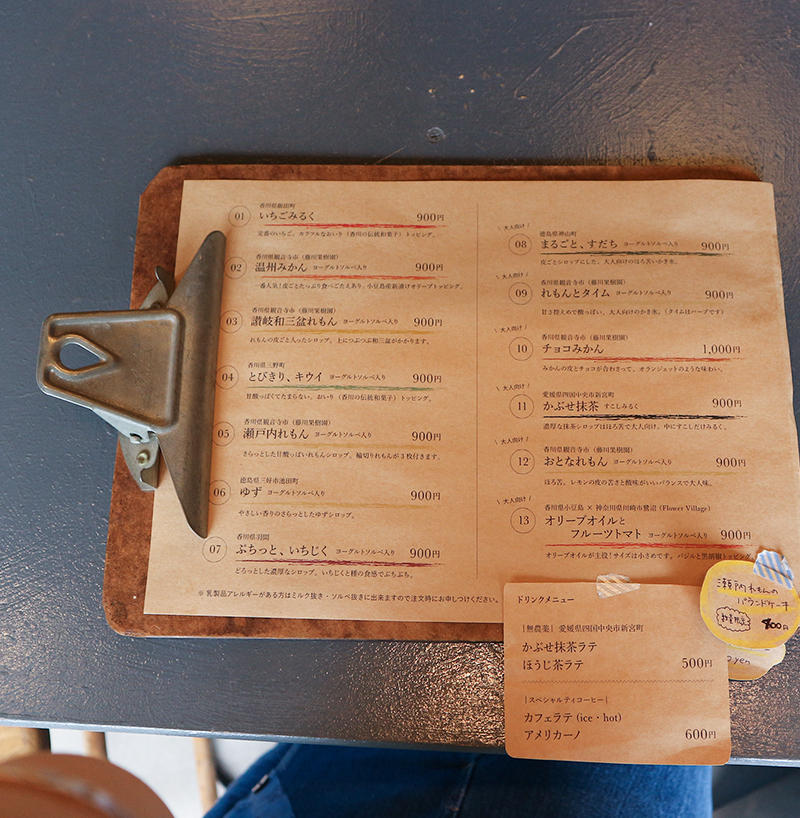 01
香川県飯田町
いちごみるく 900円
定番のいちご。カラフルなおいり(香川の伝統和菓子)トッピング。
02
香川県観音寺市(藤川果樹園)
温州みかん ヨーグルトソルベ入り 900円
一番人気!皮ごとたっぷり食べごたえあり。小豆島産新漬けオリーブトッピング。
03
香川県観音寺市(藤川果樹園)
讃岐和三盆れもん ヨーグルトソルベ入り 900円
れもんの皮ごと入ったシロップ。上につぶつぶ和三盆がかかります。
04
香川県三野町
とびきり、キウイ ヨーグルトソルベ入り 900円
甘酸っぱくてたまらない。おいり(香川の伝統和菓子)トッピング。
05
香川県観音寺市(藤川果樹園)
瀬戸内れもん ヨーグルトソルベ入り 900円
さらっとした甘酸っぱいれもんシロップ。輪切りれもんが3枚付きます。
06
徳島県三好市池田町
ゆず ヨーグルトソルベ入り 900円
やさしい香りのさらっとしたゆずシロップ。
07
香川県羽間
ぷちっと、いちじく ヨーグルトソルベ入り 900円
どろっとした濃厚なシロップ。いちじくと種の食感でぷちぷち。
※ 乳製品アレルギーがある方はミルク抜き・ソルベ抜きに出来ますので注文時にお申しつけください。
\ 大人向け /
08
徳島県神山町
まるごと、すだち ヨーグルトソルベ入り 900円
皮ごとシロップにした、大人向けのほろ苦いかき氷。
\ 大人向け /
09
香川県観音寺市(藤川果樹園)
れもんとタイム ヨーグルトソルベ入り 900円
甘さ控えめで酸っぱい、大人向けのかき氷。(タイムはハーブです)
\ 大人向け /
10
香川県観音寺市(藤川果樹園)
チョコみかん 1,000円
みかんの皮とチョコが合わさって、オランジェットのような味わい。
\ 大人向け /
11
愛媛県四国中央市新宮町
かぶせ抹茶 すこしみるく 900円
濃厚な抹茶シロップはほろ苦で大人向け。中にすこしだけみるく。
\ 大人向け /
12
香川県観音寺市(藤川果樹園)
おとなれもん ヨーグルトソルベ入り 900円
ほろ苦。レモンの皮の苦さと酸味がいいバランスで大人味。
\ 大人向け /
13
香川県小豆島 × 神奈川県川崎市鷺沼 (Flower Village)
オリーブオイルと
フルーツトマト ヨーグルトソルベ入り 900円
オリーブオイルが主役!サイズは小さめです。バジルと黒胡椒トッピング。
ドリンクメニュー
|無農薬| 愛媛県四国中央市新宮町
かぶせ抹茶ラテ
ほうじ茶ラテ 500円
|スペシャルティコーヒー|
カフェラテ (ice・hot)
アメリカーノ 600円
瀬戸内れもんの
パウンドケーキ
数量限定 400円
yen